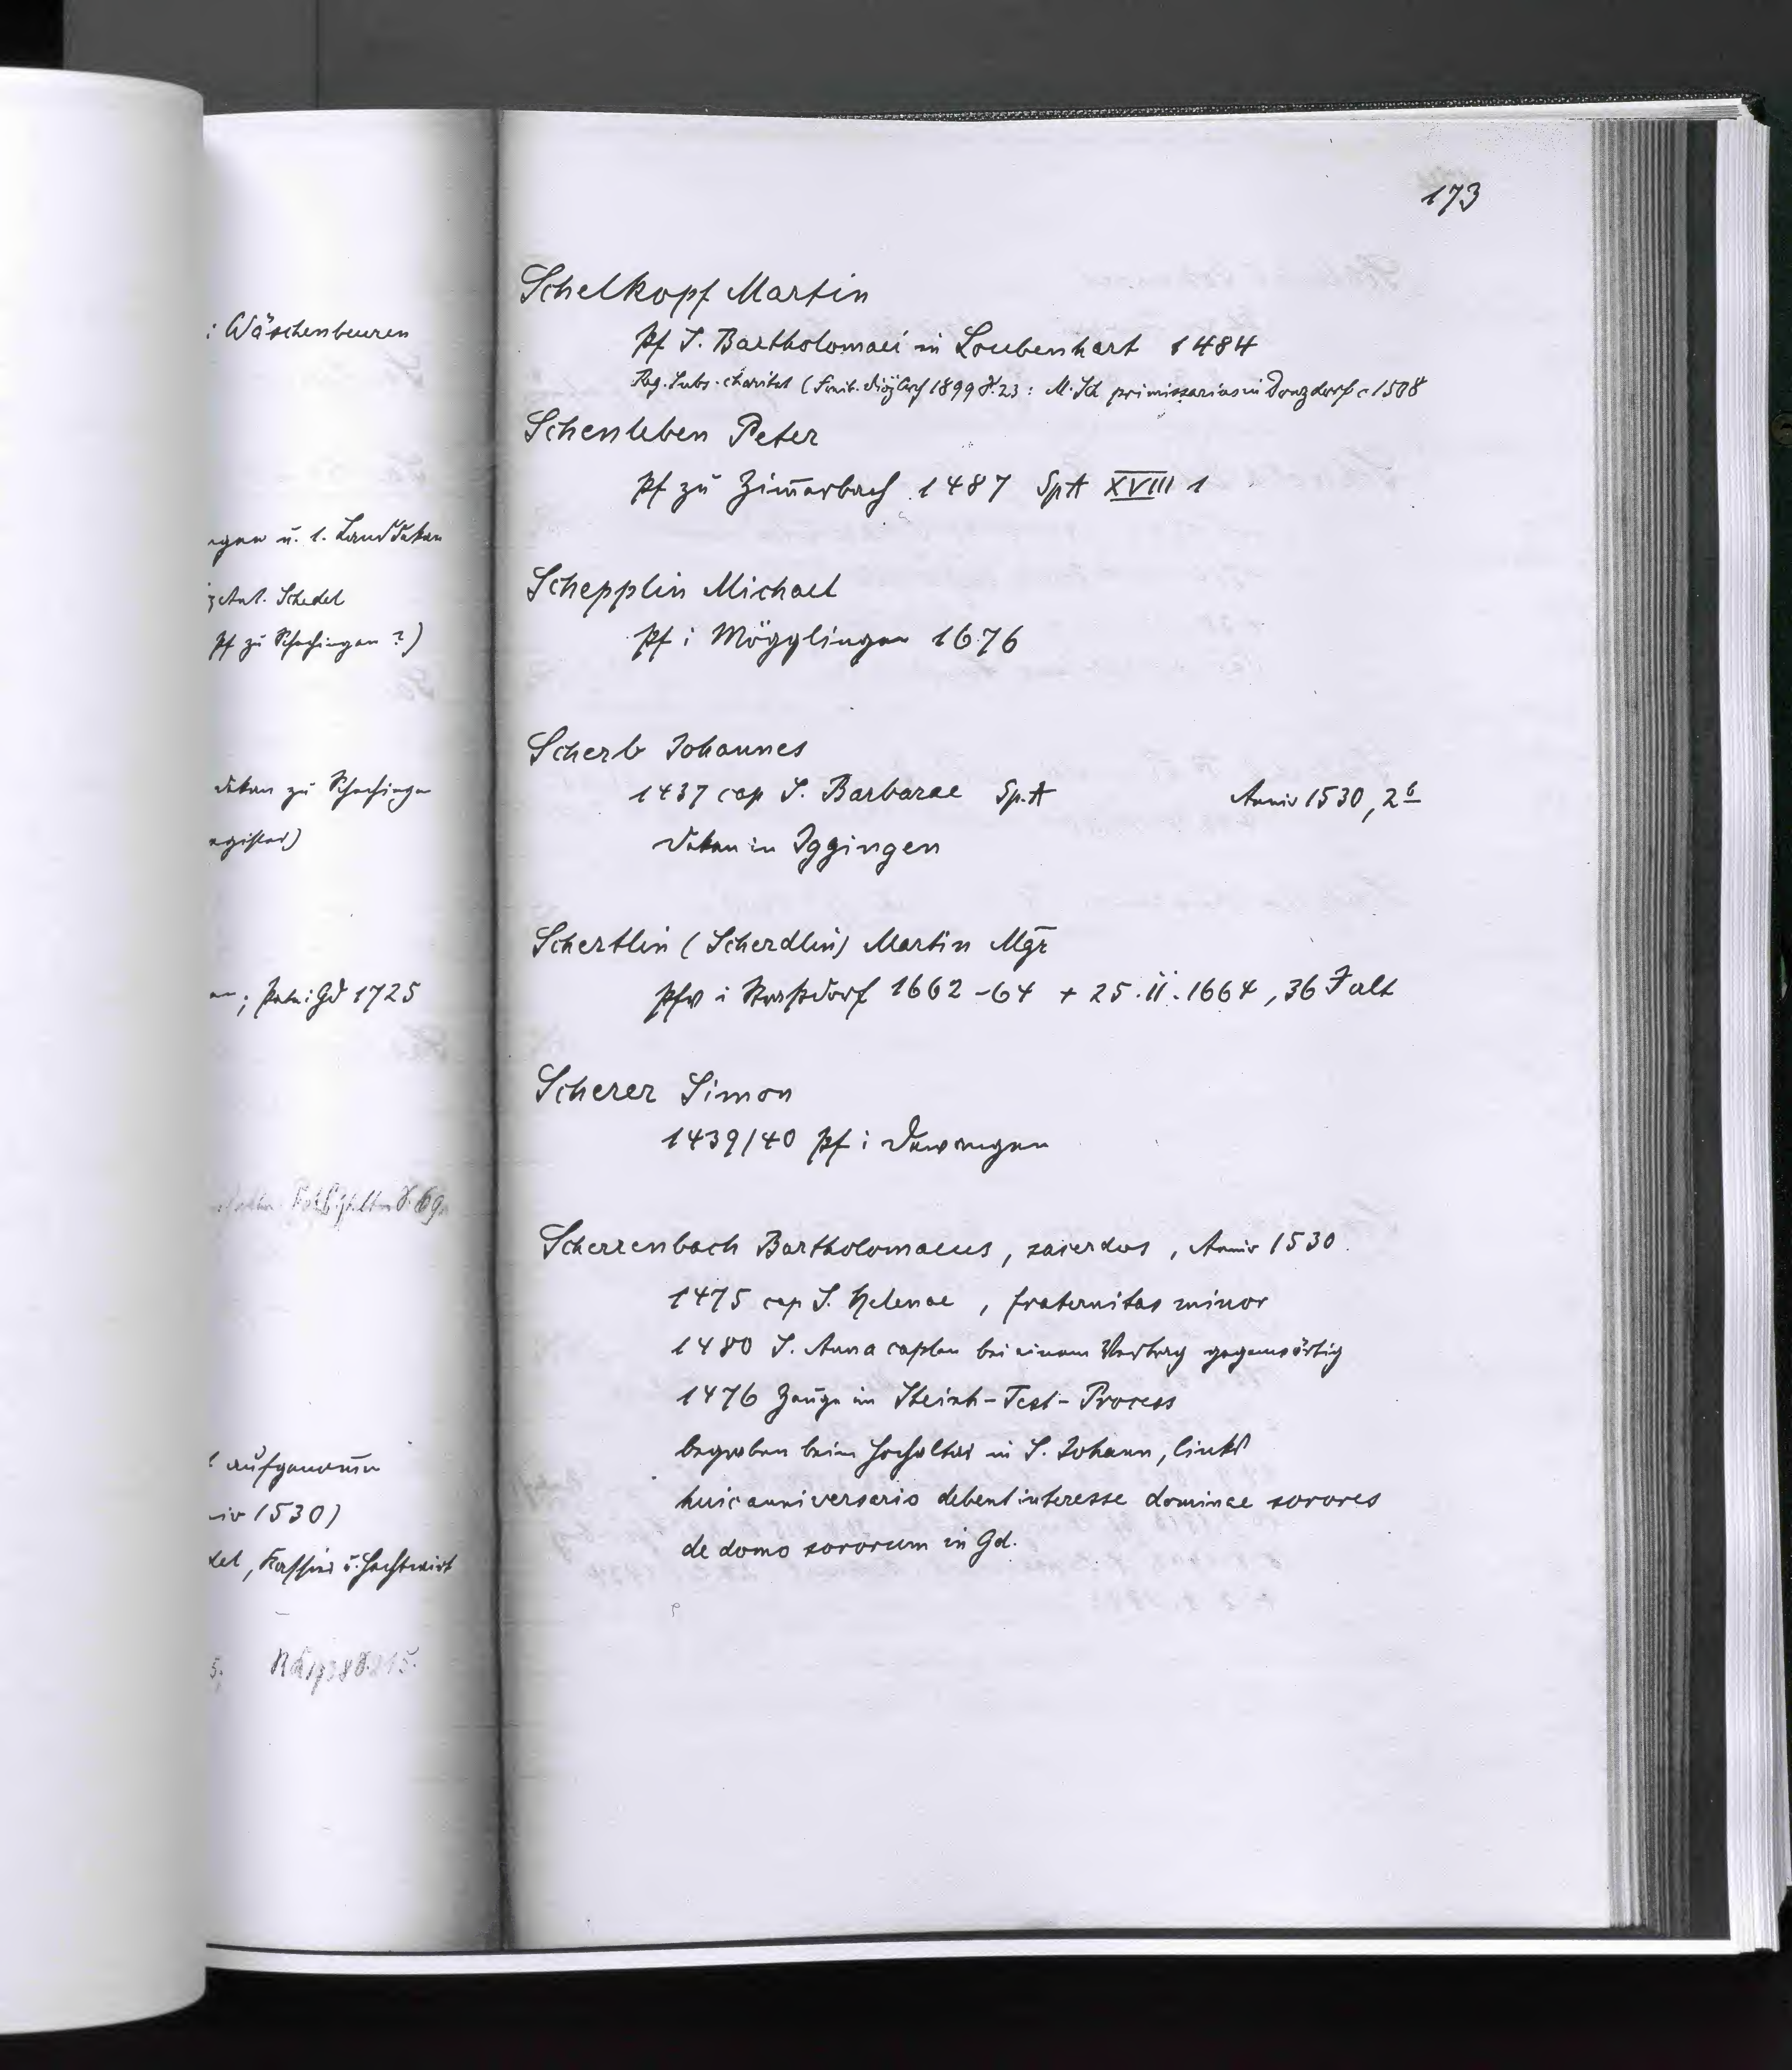 173
: Wäschenbeuren
u. l. Landdekan
Schedel
Pf zu Schechingen ?)
dekan zu Schechingen
egister)
; Paten: Gd 1725
aufgenom̄en
iv 1530)
del, Kassier u.
Schelkopf Martin
Pf S. Bartholomaei in Loubenhart 1484
Reg. Subs. charitat (Freib. Diöz Arch 1899 S. 23: M. Sch primissarius in Donzdorf c 1508
Schenleben Peter
Pf zu Zim̄erbach 1487 SpA XVIII 1
Schepplin Michael
Pf i Mögglingen 1676
Scherb Johannes
1437 cap S. Barbarae Sp.A Anniv 1530, 2b
Dekan in Iggingen
Schertlin (Scherdlin) Martin Mgr
Pfv i Straßdorf 1662-64 + 25.II.1664, 36 J alt
Scherer Simon
1439/40 Pf i Dewangen
Scherrenbach Bartholomaeus, sacerdos, Anniv 1530.
1475 cap S. Helenae, fraternitas minor
1480 S. Anna caplan bei einem Vertrag gegenwärtig
1476 Zeuge im Steinh-Test-Process
begraben beim Hochaltar in S. Johann, links
huic anniversario debent interesse dominae sorores
de domo sororum in Gd.